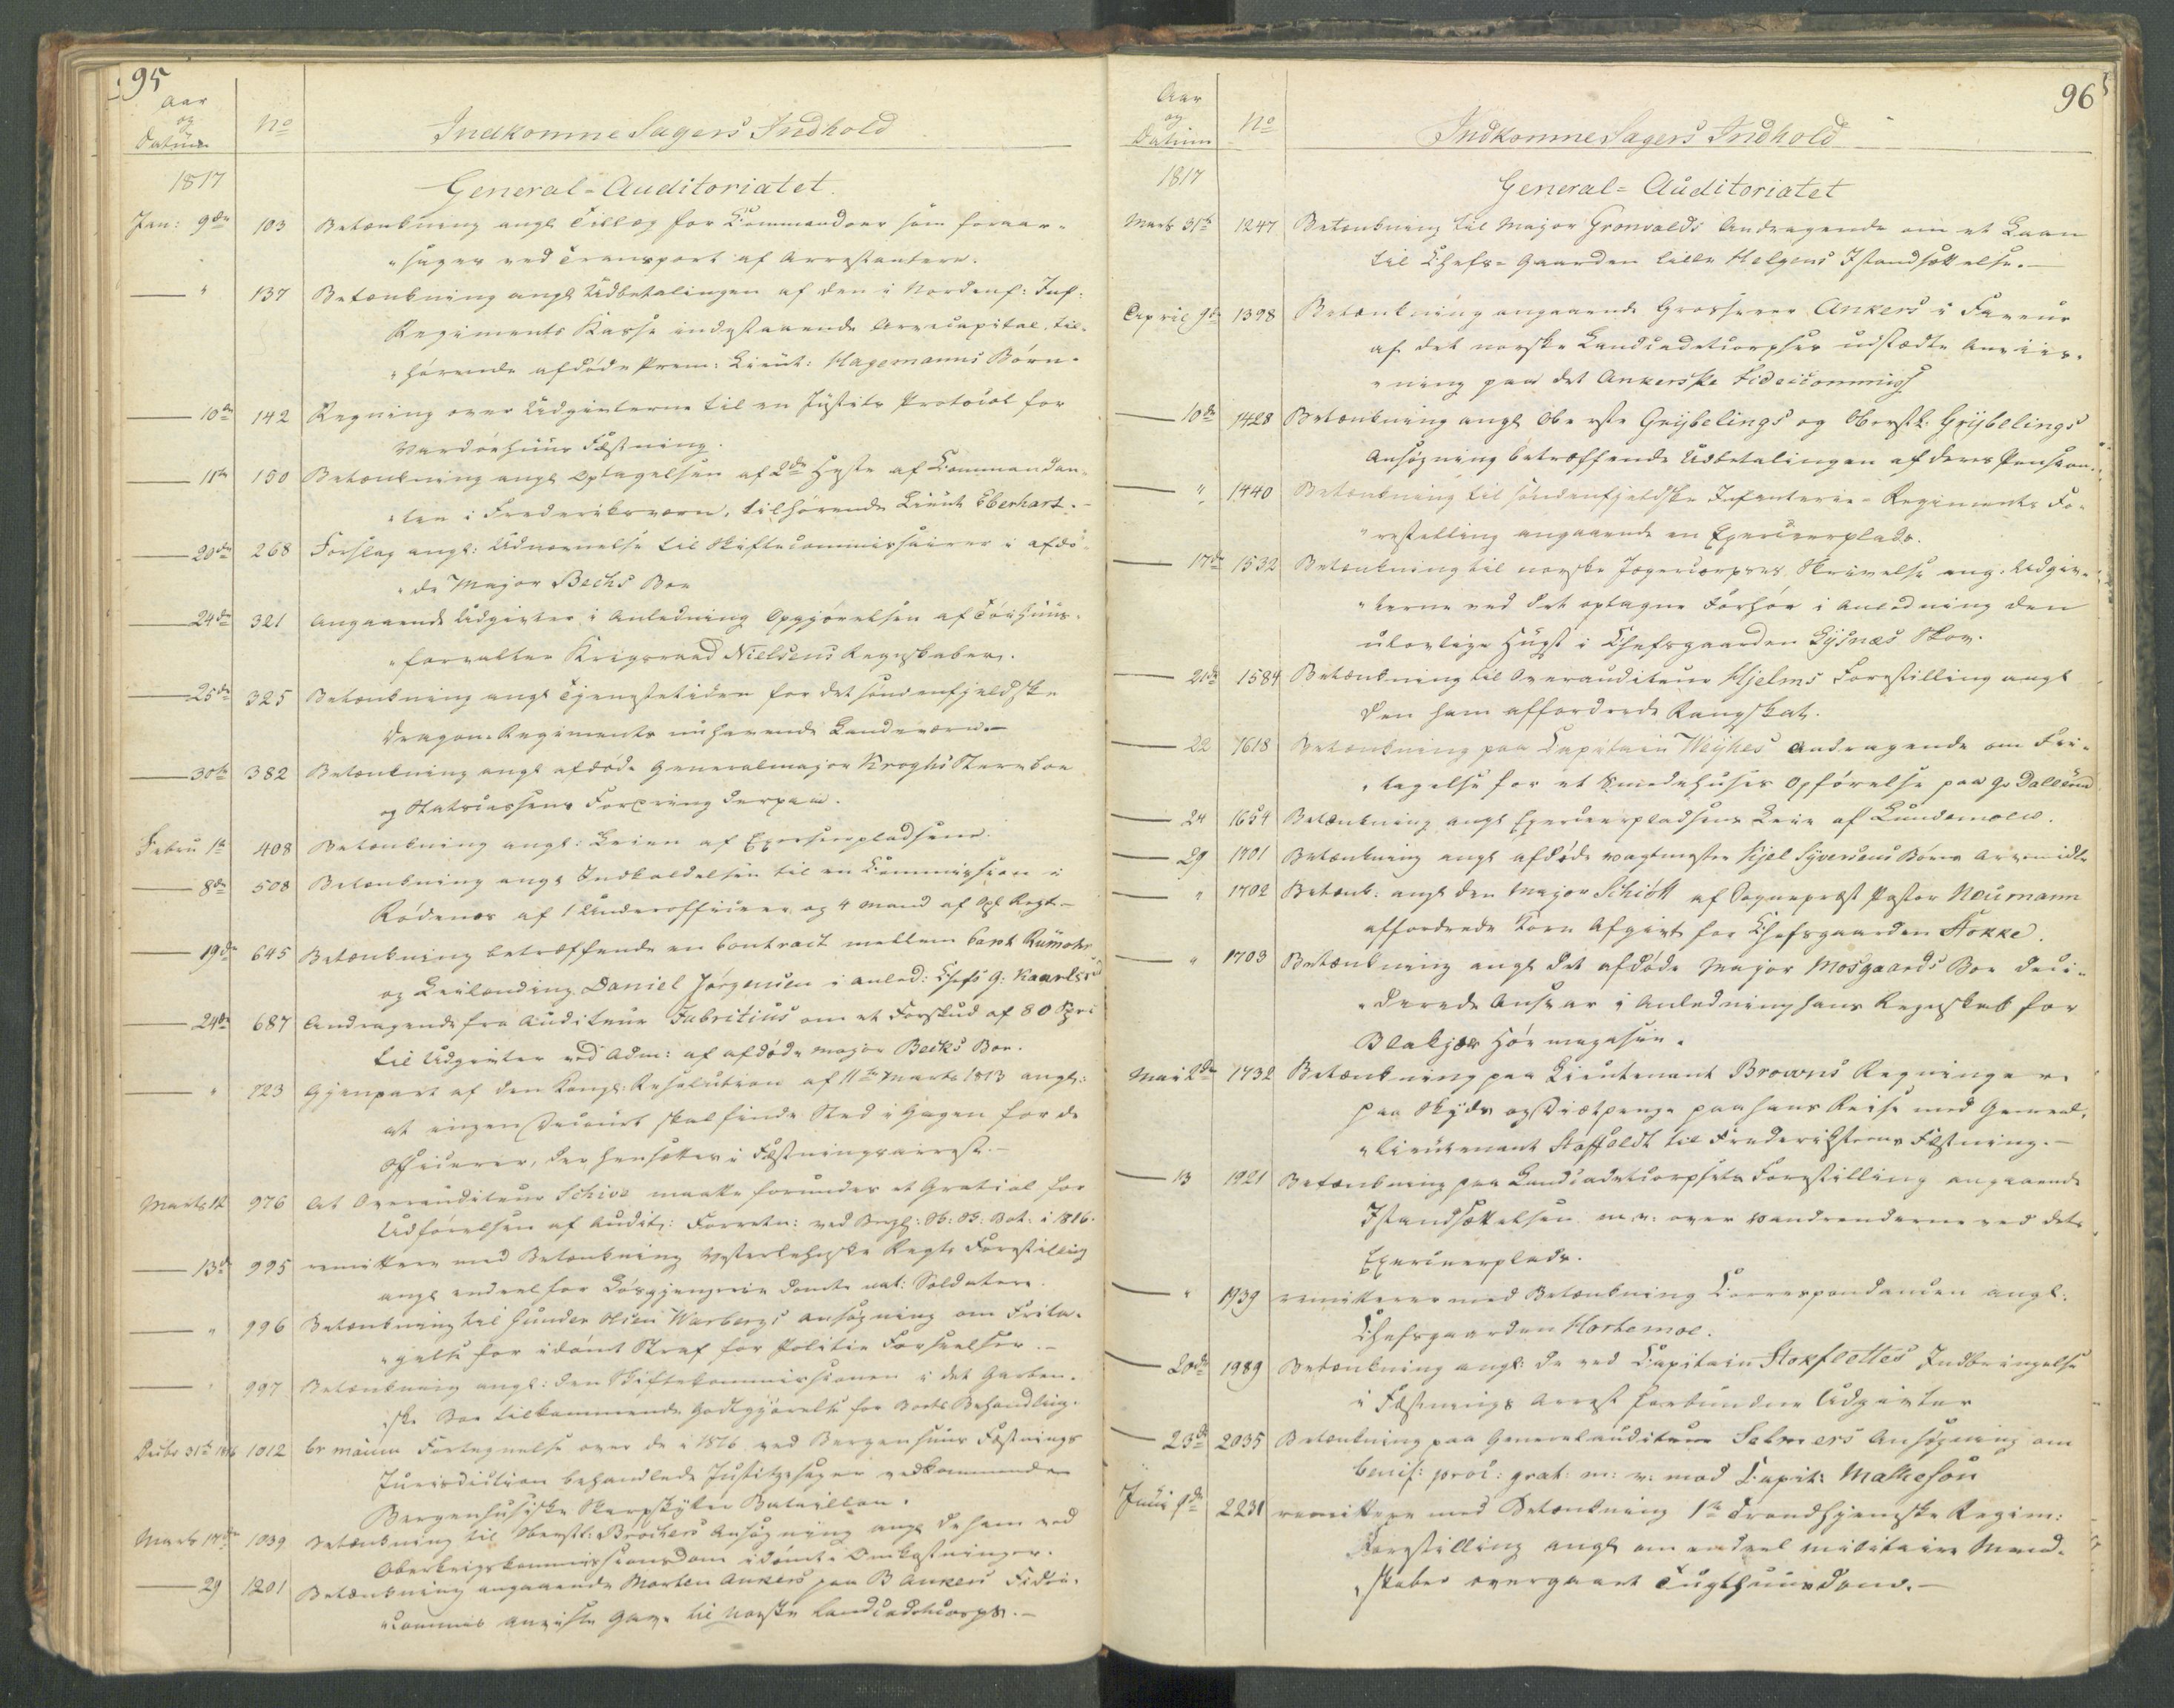 95
Aar
og
Datum
No
Indkomne Sagers Indhold
1817
General-Auditoriatet.
Jan: 9de 103 Betænkning angl Tillæg for Commandoer som foraar-
sages ved Transport af Arrestantere.
" 137 Betænkning angl Udbetalingen af den i Nordenf: Inf:
Regiments Kasse indestaaende Arvecapital, til-
hørende afdøde Prem: Lieut: Hagemanns Børn.
10de 142 Regning over Udgivterne til en Justits Protocol for
Vardøehuus Fæstning.
11te 150 Betænkning angl Optagelsen af 2de Heste af Commandan-
ten i Frederiksværn, tilhørende Lieut Eberhart.-
20de 268 Forslag angl: Udnævnelse til Skiftecommissairer i afdø-
de Major Bechs Boe
24de 321 Angaaende Udgivter i Anledning Opgjørelsen af Tøihuus-
forvalter Krigsraad Nielsens Regnskaber.
25de 325 Betænkning angl Tjenestetiden for det søndenfjeldske
Dragon-Regiments nuhavende Landeværn.-
30te 382 Betænkning angl afdøde Generalmajor Kroghs Stervboe
og Statscassens Fordring derpaa.
Febru 1te 408 Betænkning angl: Leien af Exerseerpladsene.
8de 508 Betænkning angl Indkaldelsen til en Commission i
Rødenæs af 1 Underofficeer og 4 Mand af Regt.-
19de 645 Betænkning betræffende en Contract mellem Capt Rumohr
og Leilænding Daniel Jørgensen i anled: Chefs G: Kaarlsr
24de 687 Andragende fra Auditeur Fabritius om et Forskud af 80 Spe
til Udgivter ved Adm: af afdøde Major Becks Boe.
" 723 Gjenpart af den Kongl: Resolution af 11te Marts 1813 angl:
at ingen skal finde Sted i Gagen for de
Officerer, der hensættes i Fæstningsarrest.-
Marts 12 976 At Overauditeur Schive maatte forundes et Gratial for
Udførelsen af Audits: Forretn: ved Brgh: Sk: Bat: i 1816.
13de 995 remittere med Betænkning Vesterlehnske Regts Forestilling
angl endeel for Løsgjængerie dømte nat: Soldater.
" 996 Betænkning til Warbergs Ansøgning om Frita-
gelse for idømt Straf for Politie Forseelser.-
" 997 Betænkning angl: den Skiftekommissionen i det Garben-
ske Boe tilkommende Godtgjørelse for Boets Behandling.
Decbr 31te 1816 1012 br manu Fortegnelse over de i 1816 ved Bergenhuus Fæstnings
Jurisdiction behandlede Justitssager vedkommende
Bergenhusiske Skarpskytter Bataillon.
Marts 17de 1039 Betænkning til Oberstl: Brochers Ansøgning angl de ham ved
Overkrigskommissionsdom idømte Omkostninger.
29 1201 Betænkning angaaende Morten Ankers paa B Ankers Fidei-
commis anviste Gave til Norske Landcadetcorps.-
96
Aar
og
Datum
No
Indkomne Sagers Indhold
1817
General-Auditoriatet
Marts 31te 1247 Betænkning til Major Grønvolds Andragende om et Laan
til Chefs-Gaarden lille Helgens Istandsættelse.-
April 9de 1398 Betænkning angaaende Grosserer Ankers i Faveur
af det norske Landcadetcorpses udstædte Anviis-
ning paa det Ankerske Fideicommiss
10de 1428 Betænkning angl Oberste Grybelings og Oberstl: Grybelings
Ansøgning betræffende Udbetalingen af deres Pension.
" 1440 Betænkning til søndenfjeldske Infanterie-Regiments Fo-
restilling angaaende en Exerceerplads.
17de 1532 Betænkning til norske Jægercorpses Skrivelse ang: Udgiv-
terne ved det optagne Forhør i Anledning den
ulovlige Hugst i Chefsgaarden Lysnæs Skov.
21de 1584 Betænkning til Overauditeur Hjelms Forestilling angl
den ham affordrede Rangskat.
22 1618 Betænkning paa Capitain Weyhes Andragende om Fri-
tagelse for et Smedehuses Opførelse paa G: Dallerud
24 1654 Betænkning angl Exerceerpladsens Leie af Lundemoen.
29 1701 Betænkning angl afdøde Vagtmester Kjel Syversens Børns Arvemidle
" 1702 Betænk: angl den Major Schiøtt af Sognepræst Pastor Neumann
affordrede Korn Afgivt for Chefsgaarden Stokke.
" 1703 Betænkning angl det afdøde Major Mosgaards Boe deci-
derede Ansvar i Anledning hans Regnskab for
Blakjær Høe magasin.
Mai 2de 1732 Betænkning paa Lieutenant Browns Regninger
paa Skyds og Diætpenge paa hans Reise med General-
Lieutenant Staffeldt til Frederikssteens Fæstning.-
13 1921 Betænkning paa Landcadetcorpsets Forestilling angaaende
Istandsættelsen m.v: over Vandrenderne ved dets
Exerceerplads.
" 1939 remitterer med Betænkning Correspondancen angl:
Chefsgaarden Hortemoe.
20de 1989 Betænkning angl: de ved Capitain Stokflettes Indbringelse
i Fæstnings Arrest forbundne Udgivter
23de 2035 Betænkning paa Generalauditeur Selmers Ansøgning om
benif: proc: grat: m: v: mod Capit: Matheson
Juni 9de 2231 remittere med Betænkning 1te Trondhjemske Regim:
Forestilling angl om endeel militaire Mand-
skaber overgaaet Tugthuusdom.-